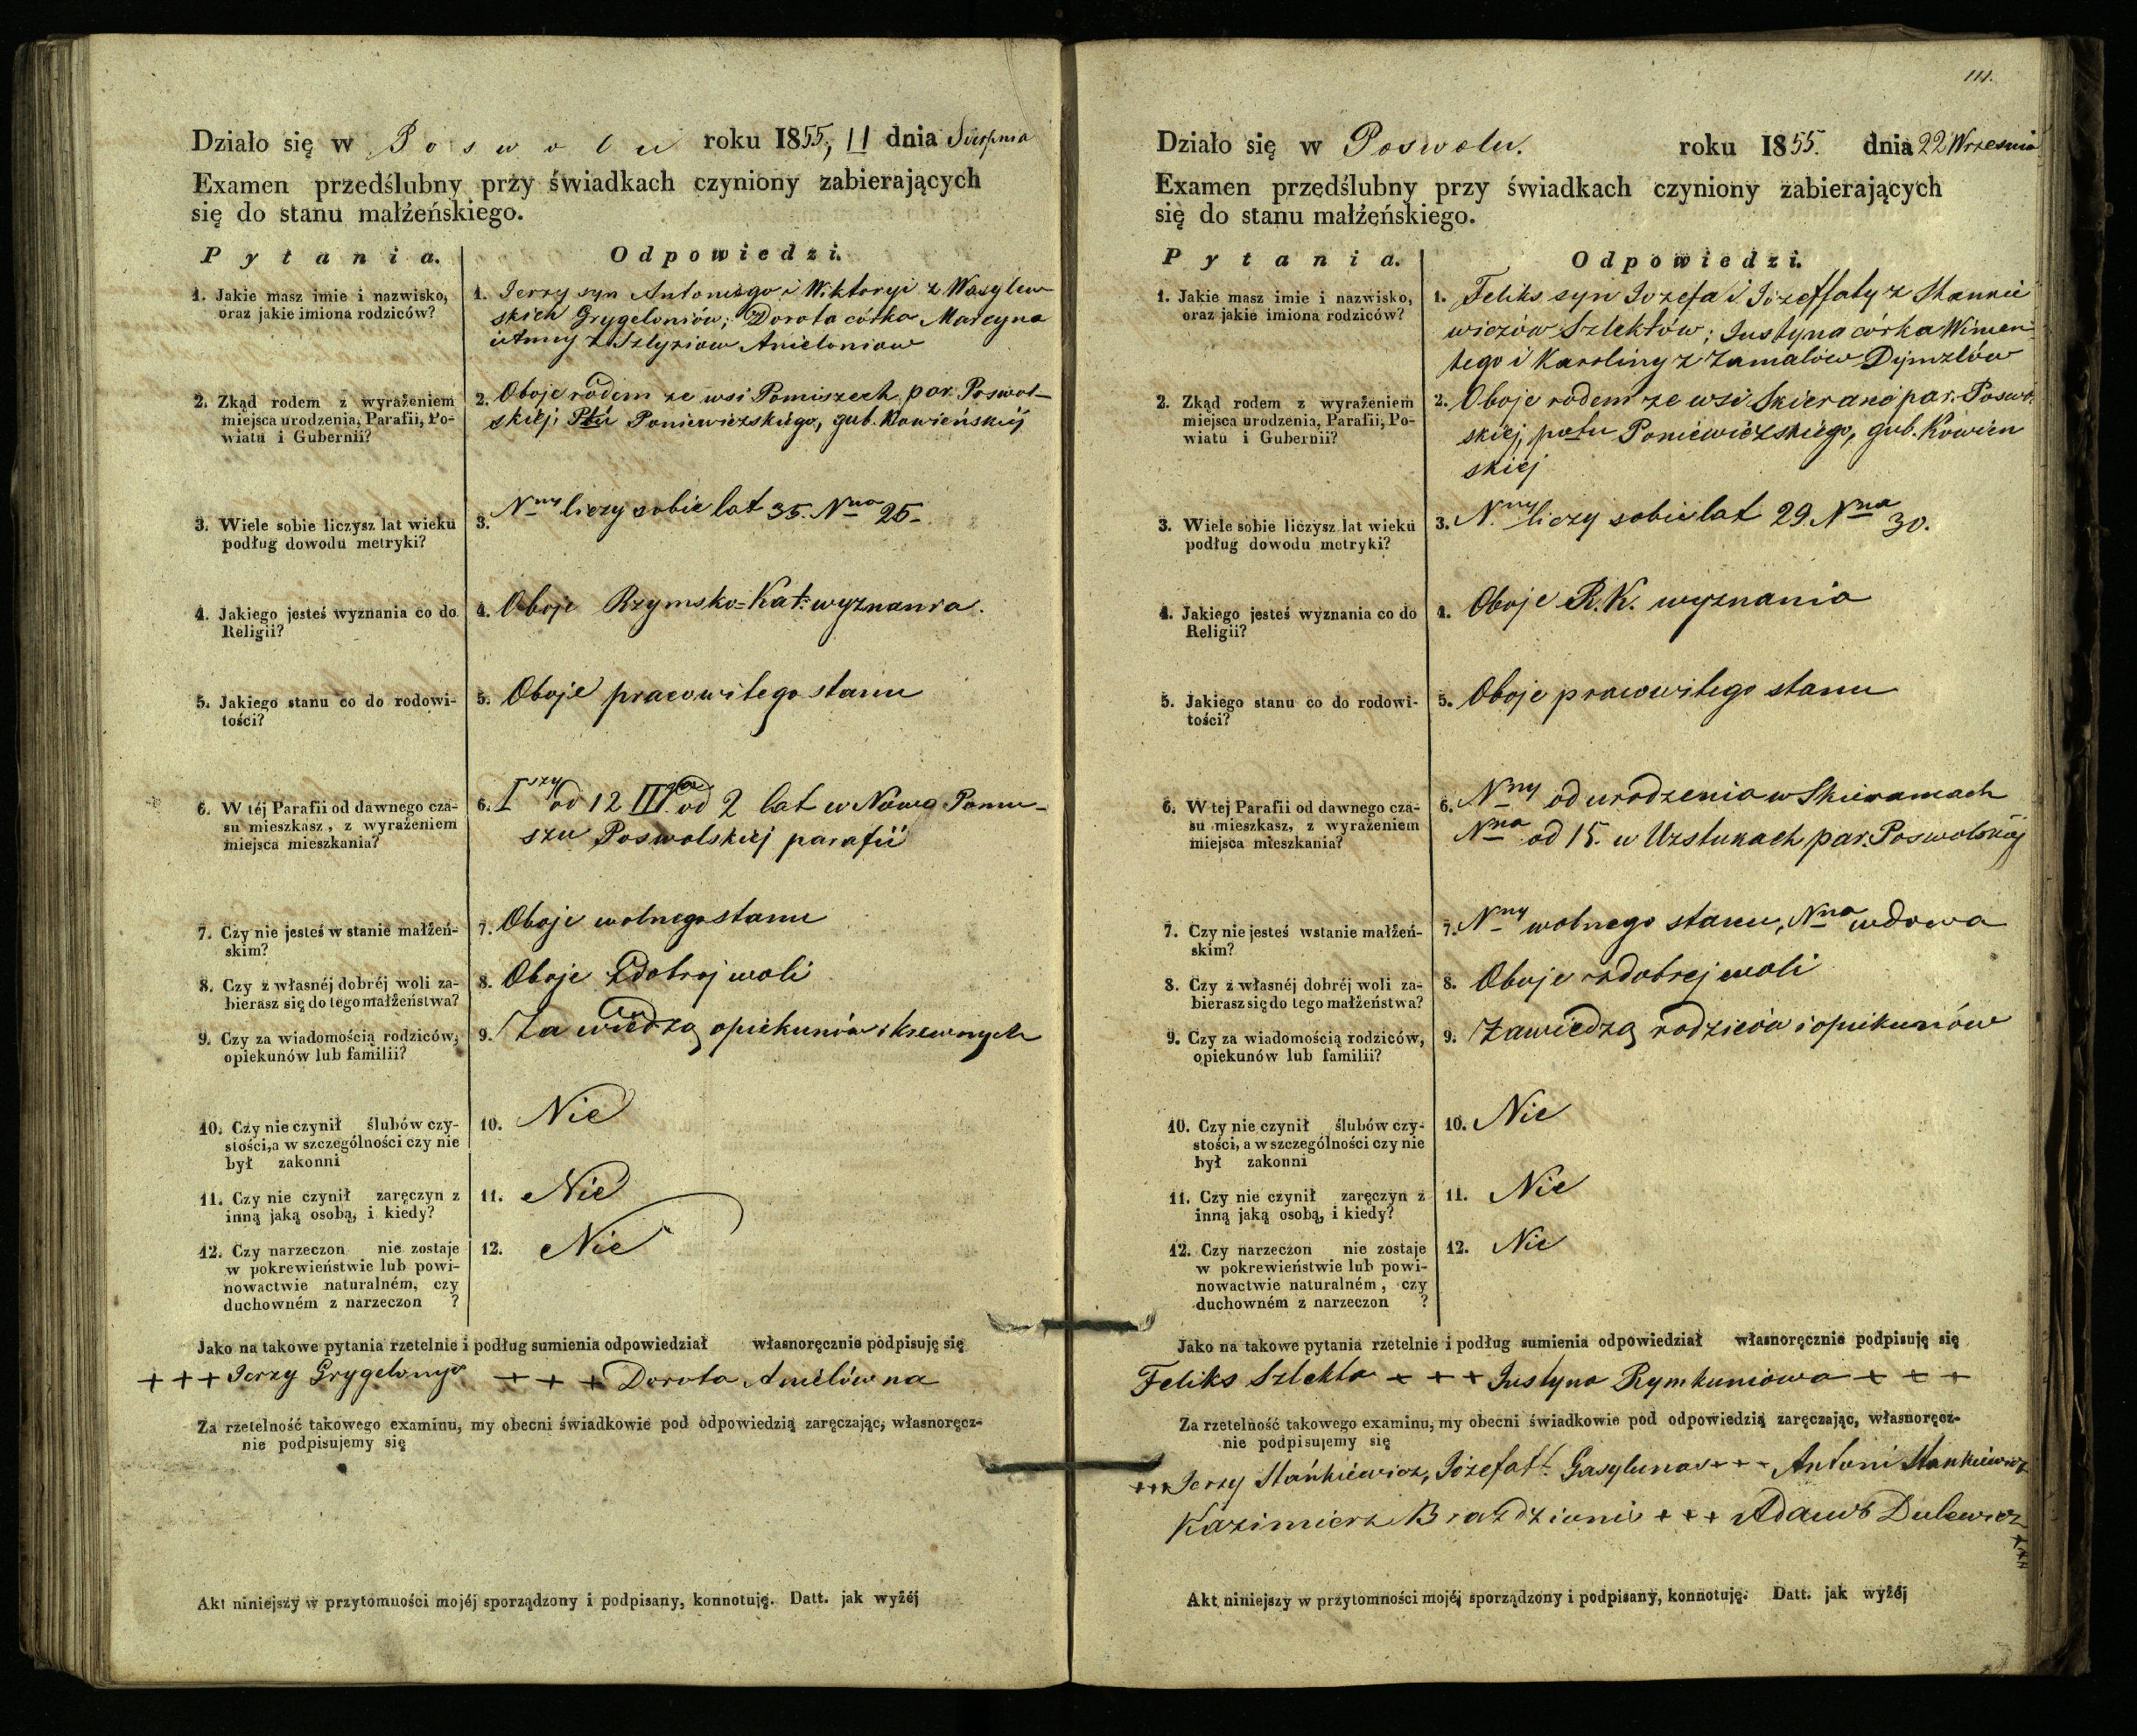 Działo się w Poswolu roku 1855, 11 dnia Sierpnia
Examen przedślubny przy świadkach czyniony zabierających
się do stanu małżeńskiego.
Pytania. Odpowiedzi.
1. Jakie masz imie i nazwisko,
oraz jakie imiona rodziców?
1. Jerzy syn Antoniego i Wiktoryi z Wasylew
skich Grygeloniów; Dorota córka Marcyna
i Anny z Szlyziow Anieloniow
2. Zkąd rodem z wyrażeniem
miejsca urodzenia, Parafii, Po-
wiatu i Gubernii?
2. Oboje rodem ze wsi Pomuszech par. Poswol-
skiéj; Ptu Poniewiezskiego, gub. Kowieńskiéj
3. Wiele sobie liczysz lat wieku
podług dowodu metryki?
3. Nny liczy sobie lat 35. Nna 25-
4. Jakiego jesteś wyznania co do
Religii?
4. Oboje Rzymsko=Kat: wyznania.
5. Jakiego stanu co do rodowi-
tości?
5. Oboje pracowitego stanu
6. W téj Parafii od dawnego cza-
su mieszkasz, z wyrażeniem
miejsca mieszkania?
6. Iszy od 12 IIga od 2 lat w Nowa Pomu-
szu Poswolskiej parafii
7. Czy nie jesteś w stanie małżeń-
skim?
7. Oboje wolnego stanu
8. Czy z własnéj dobréj woli za-
bierasz się do tego małżeństwa?
8. Oboje z dobrej woli
9. Czy za wiadomością rodziców,
opiekunów lub familii?
9. Za wiedzą opiekunów i krewnych
10. Czy nie czynił ślubów czy-
stości, a w szczególności czy nie
był zakonni
10. Nie
11. Czy nie czynił zaręczyn z
inną jaką osobą, i kiedy?
11. Nie
12. Czy narzeczon nie zostaje
w pokrewieństwie lub powi-
nowactwie naturalném, czy
duchowném z narzeczon ?
12. Nie
Jako na takowe pytania rzetelnie i podług sumienia odpowiedział własnoręcznie podpisuję się
+ + + Jerzy Grygelonys + + + Dorota Anielówna
Za rzetelność takowego examinu, my obecni świadkowie pod odpowiedzią zaręczając, własnoręcz-
nie podpisujemy się
Akt niniejszy w przytomności mojéj sporządzony i podpisany, konnotuję. Datt. jak wyżéj
111.
Działo się w Poswolu. roku 1855. dnia 22 Wrzesnia
Examen przedślubny przy świadkach czyniony zabierających
się do stanu małżeńskiego.
Pytania. Odpowiedzi.
1. Jakie masz imie i nazwisko,
oraz jakie imiona rodziców?
1. Feliks syn Jozefa i Józeffaty z Stankie
wiczów Szlektów; Justyna córka Wincen
tego i Karoliny z Zamalów Dymzlów
2. Zkąd rodem z wyrażeniem
miejsca urodzenia, Parafii, Po-
wiatu i Gubernii?
2. Oboje rodem ze wsi Skieranc par. Poswol
skiéj, potu Poniewiezskiego, gub. Kowien
skiej
3. Wiele sobie liczysz lat wieku
podług dowodu metryki?
3. Nny liczy sobie lat 29. Nna 30.
4. Jakiego jesteś wyznania co do
Religii?
4. Oboje R.K. wyznania
5. Jakiego stanu co do rodowi-
tości?
5. Oboje pracowitego stanu
6. W tej Parafii od dawnego cza-
su mieszkasz, z wyrażeniem
miejsca mieszkania?
6. Nny od urodzenia w Skieramach
Nna od 15. w Uzstukach par. Poswolskiéj
7. Czy nie jesteś wstanie małżeń-
skim?
7. Nny wolnego stanu, Nna wdowa
8. Czy z własnéj dobréj woli za-
bierasz się do tego małżeństwa?
8. Oboje z dobrej woli
9. Czy za wiadomością rodziców,
opiekunów lub familii?
9. Za wiedzą rodziców i opiekunów
10. Czy nie czynił ślubów czy-
stości, a w szczególności czy nie
był zakonni
10. Nie
11. Czy nie czynił zaręczyn z
inną jaką osobą, i kiedy?
11. Nie
12. Czy narzeczon nie zostaje
w pokrewieństwie lub powi-
nowactwie naturalném, czy
duchowném z narzeczon ?
12. Nie
Jako na takowe pytania rzetelnie i podług sumienia odpowiedział własnoręcznie podpisuję się
Feliks Szlekta + + + Justyna Rymkuniowa + + +
Za rzetelność takowego examinu, my obecni świadkowie pod odpowiedzią zaręczając, własnoręcz-
nie podpisujemy się
+++ Jerzy Stańkiéwicz, Józefatt. Gasylunas + + - Antoni Stankiewicz
Kazimierz Brazdziunis + + + Adam Dulewicz
+++
Akt niniejszy w przytomności mojéj sporządzony i podpisany, konnotuję. Datt. jak wyżéj